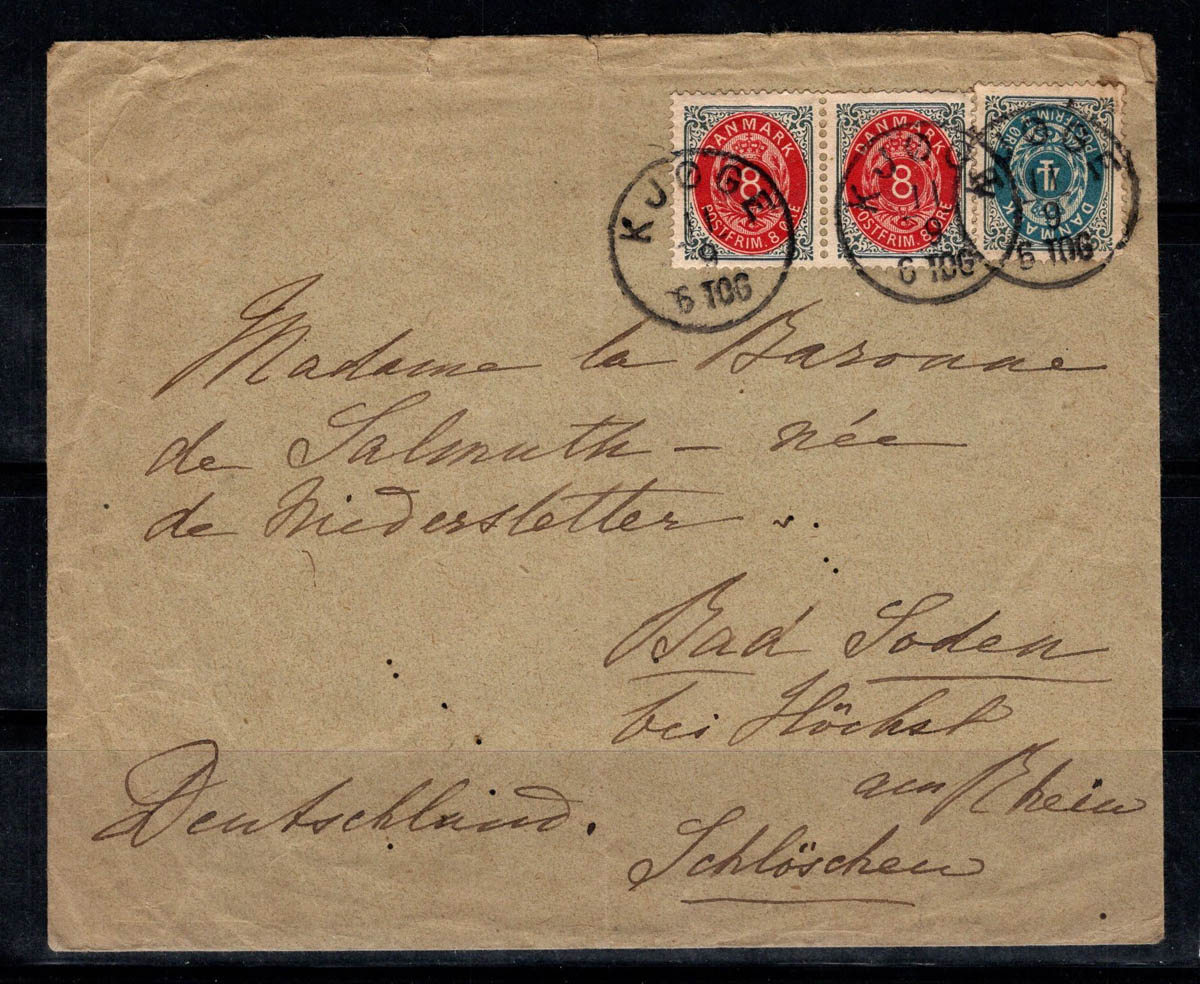 DANMARK
8
POSTFRIM. 8 ØRE
DANMARK
8
POSTFRIM. 8 ØRE
DANMARK
4
POSTFRIM. 4 ØRE
KJØGE
11
9
6 TOG
KJØGE
11
9
6 TOG
KJØGE
11
9
6 TOG
Madame la Baronne
de Salmuth – née
de Niederstetter
Bad Soden
bei Höchst
am Rhein
Deutschland.
Schlöschen